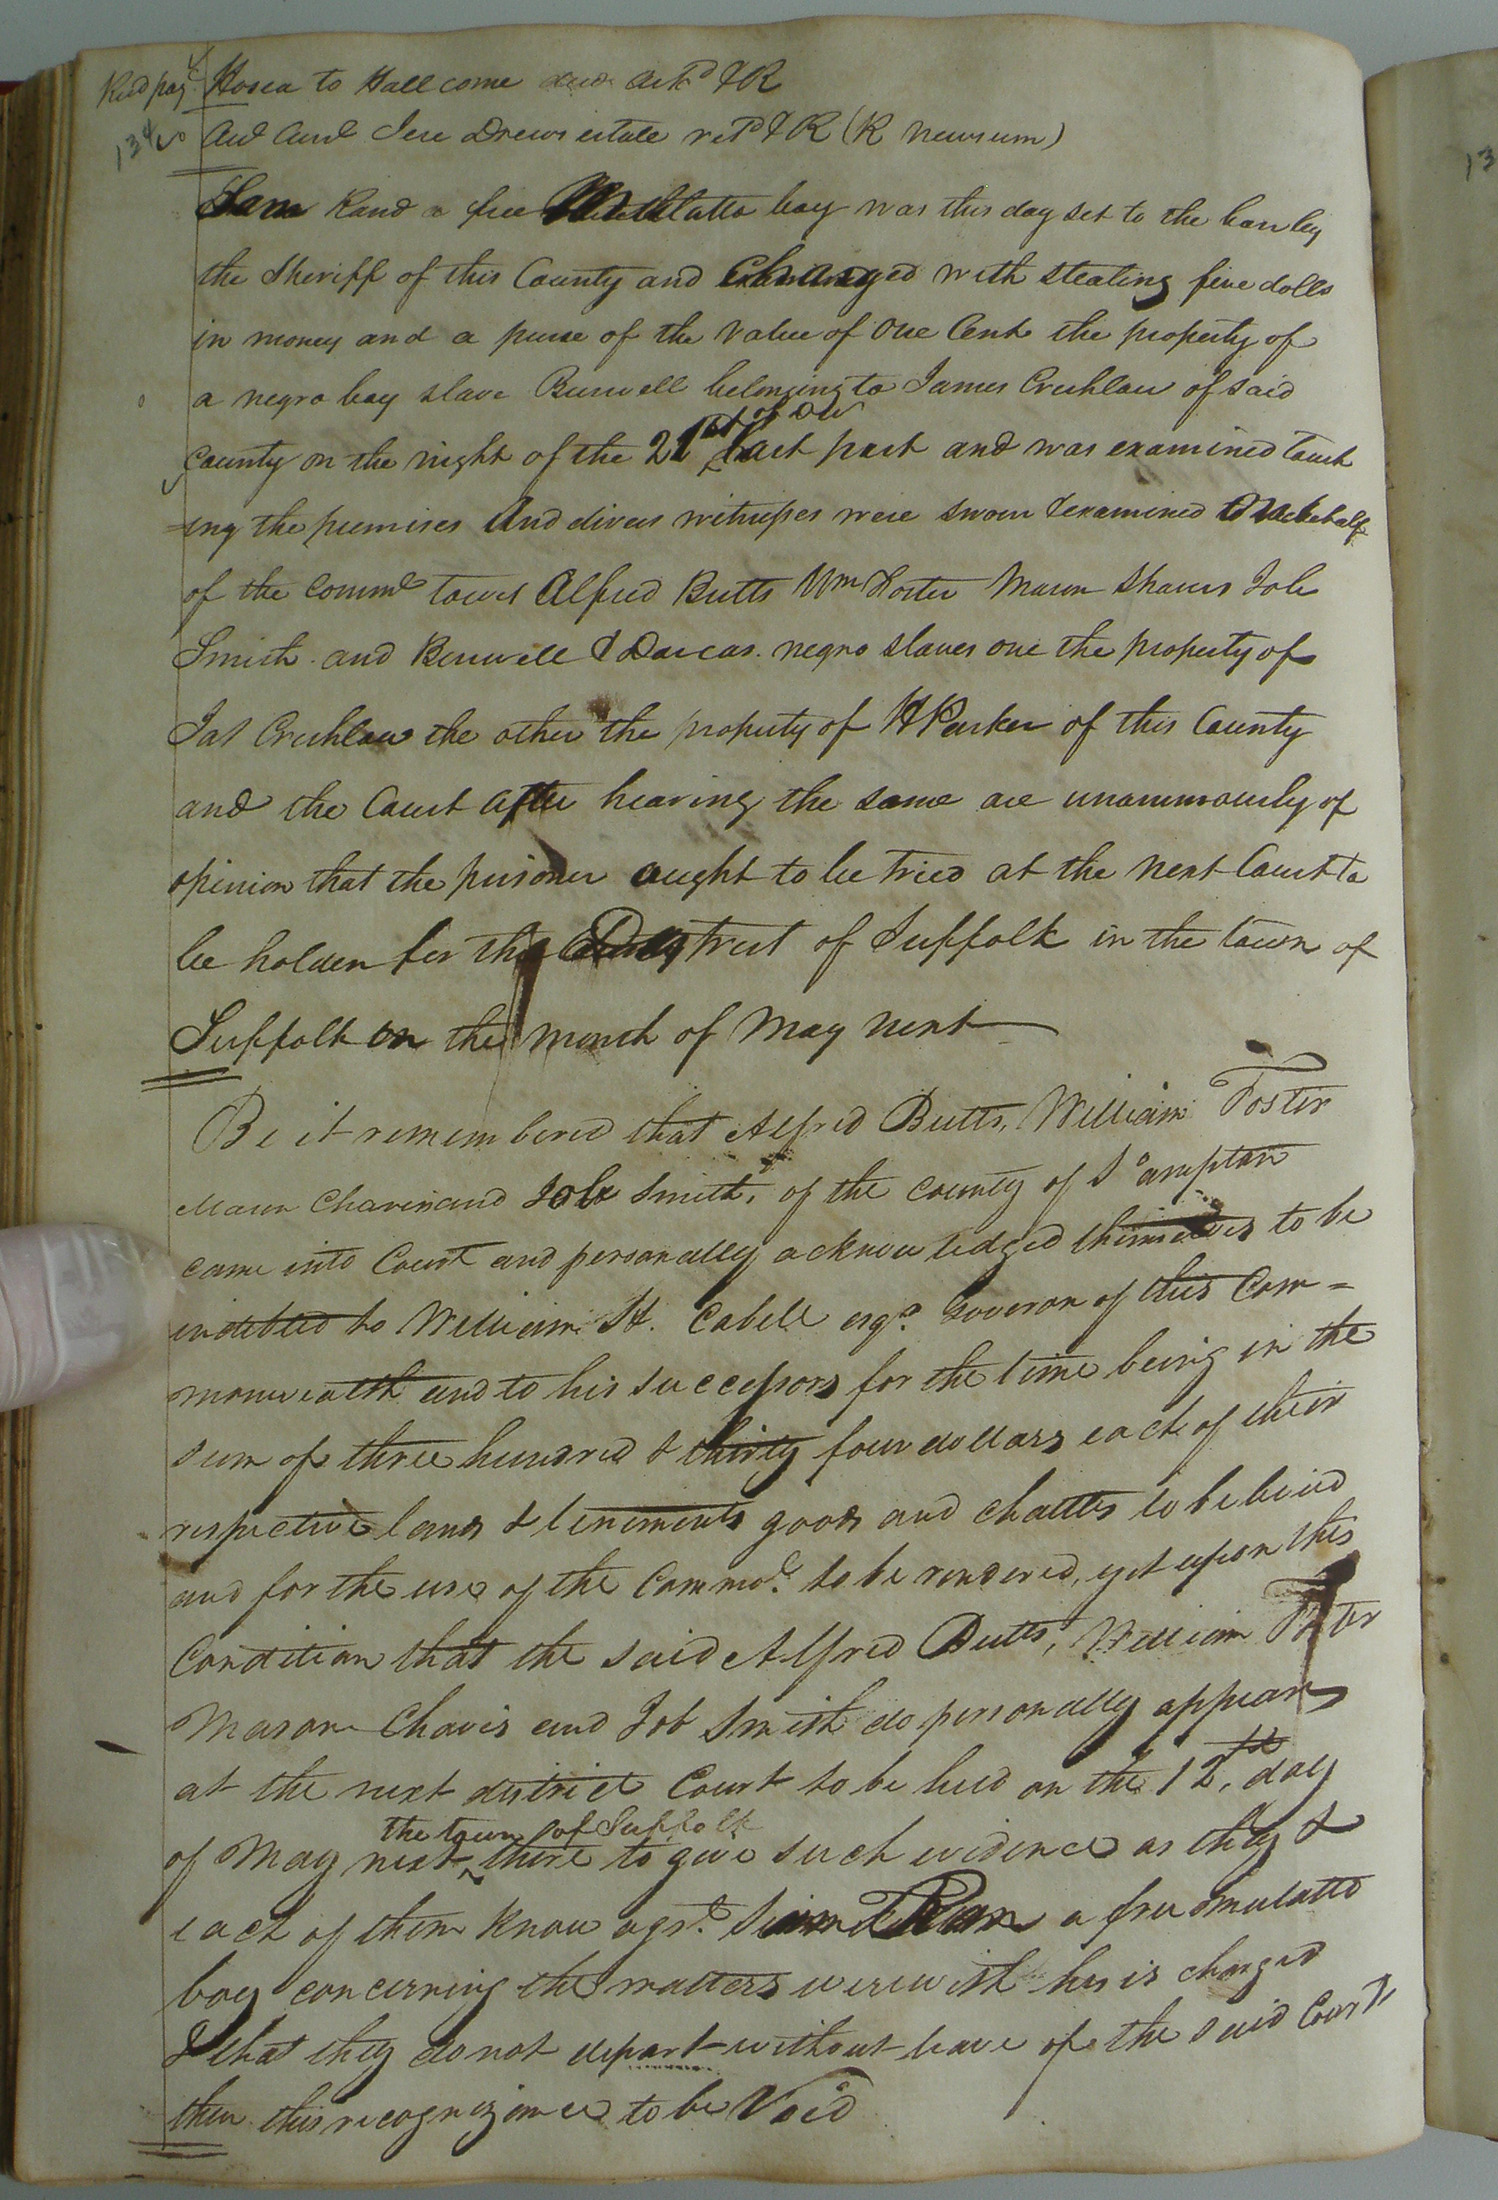 Hosea to Hall come and ack.d & R
Aud Acct Jere Drews estate ret.d & R (R Newsum)
Sam Rand a free Mulatto boy was this day set to the bar by
the Sheriff of this County and charged with stealing five dolls
in money and a purse of the value of one Cent the property of
a negro boy slave Burwell belonging to James Crichlow of said
County on the night of the 21st last past and was examined touch
=ing the premises And divers witnesses were sworn & examined behalf
of the Commo towit Alfred Butts Wm Foster Mason Job
Smith and Burwell & Darcas negro slaves one the property of
Jas Crichlow the other the property of H Parker of this County
and the Court after hearing the same are unanimously of
opinion that the prisoner ought to be tried at the next Court to
be holden for the District of Suffolk in the town of
Suffolk on the month of May next
Be it remembered that Alfred Butts, William Foster
Mason Chavis and Job Smith, of the county of So ampton
came into Court and personally acknowledged themselves to be
indebted to William H. Cabell esqr. Governor of this Com=
monwealth and to his successors for the time being in the
sum of three hundred & thirty four dollars each of their
respective lands & tenements goods and chattes to be levied
and for the use of the Commo. to be rendered, yet upon this
Condition that the said Alfred Butts, William Foster
Mason Chavis and Job Smith do personally appear
at the next district Court to be held on the 12th. day
the town of Suffolk
of May next there to give such evidence as they &
each of them know agst. Sam Ran a free mulatto
boy concerning the matters werewith he is charged
& that they do not depart without leave of the said Court
then this recognizance to be Void